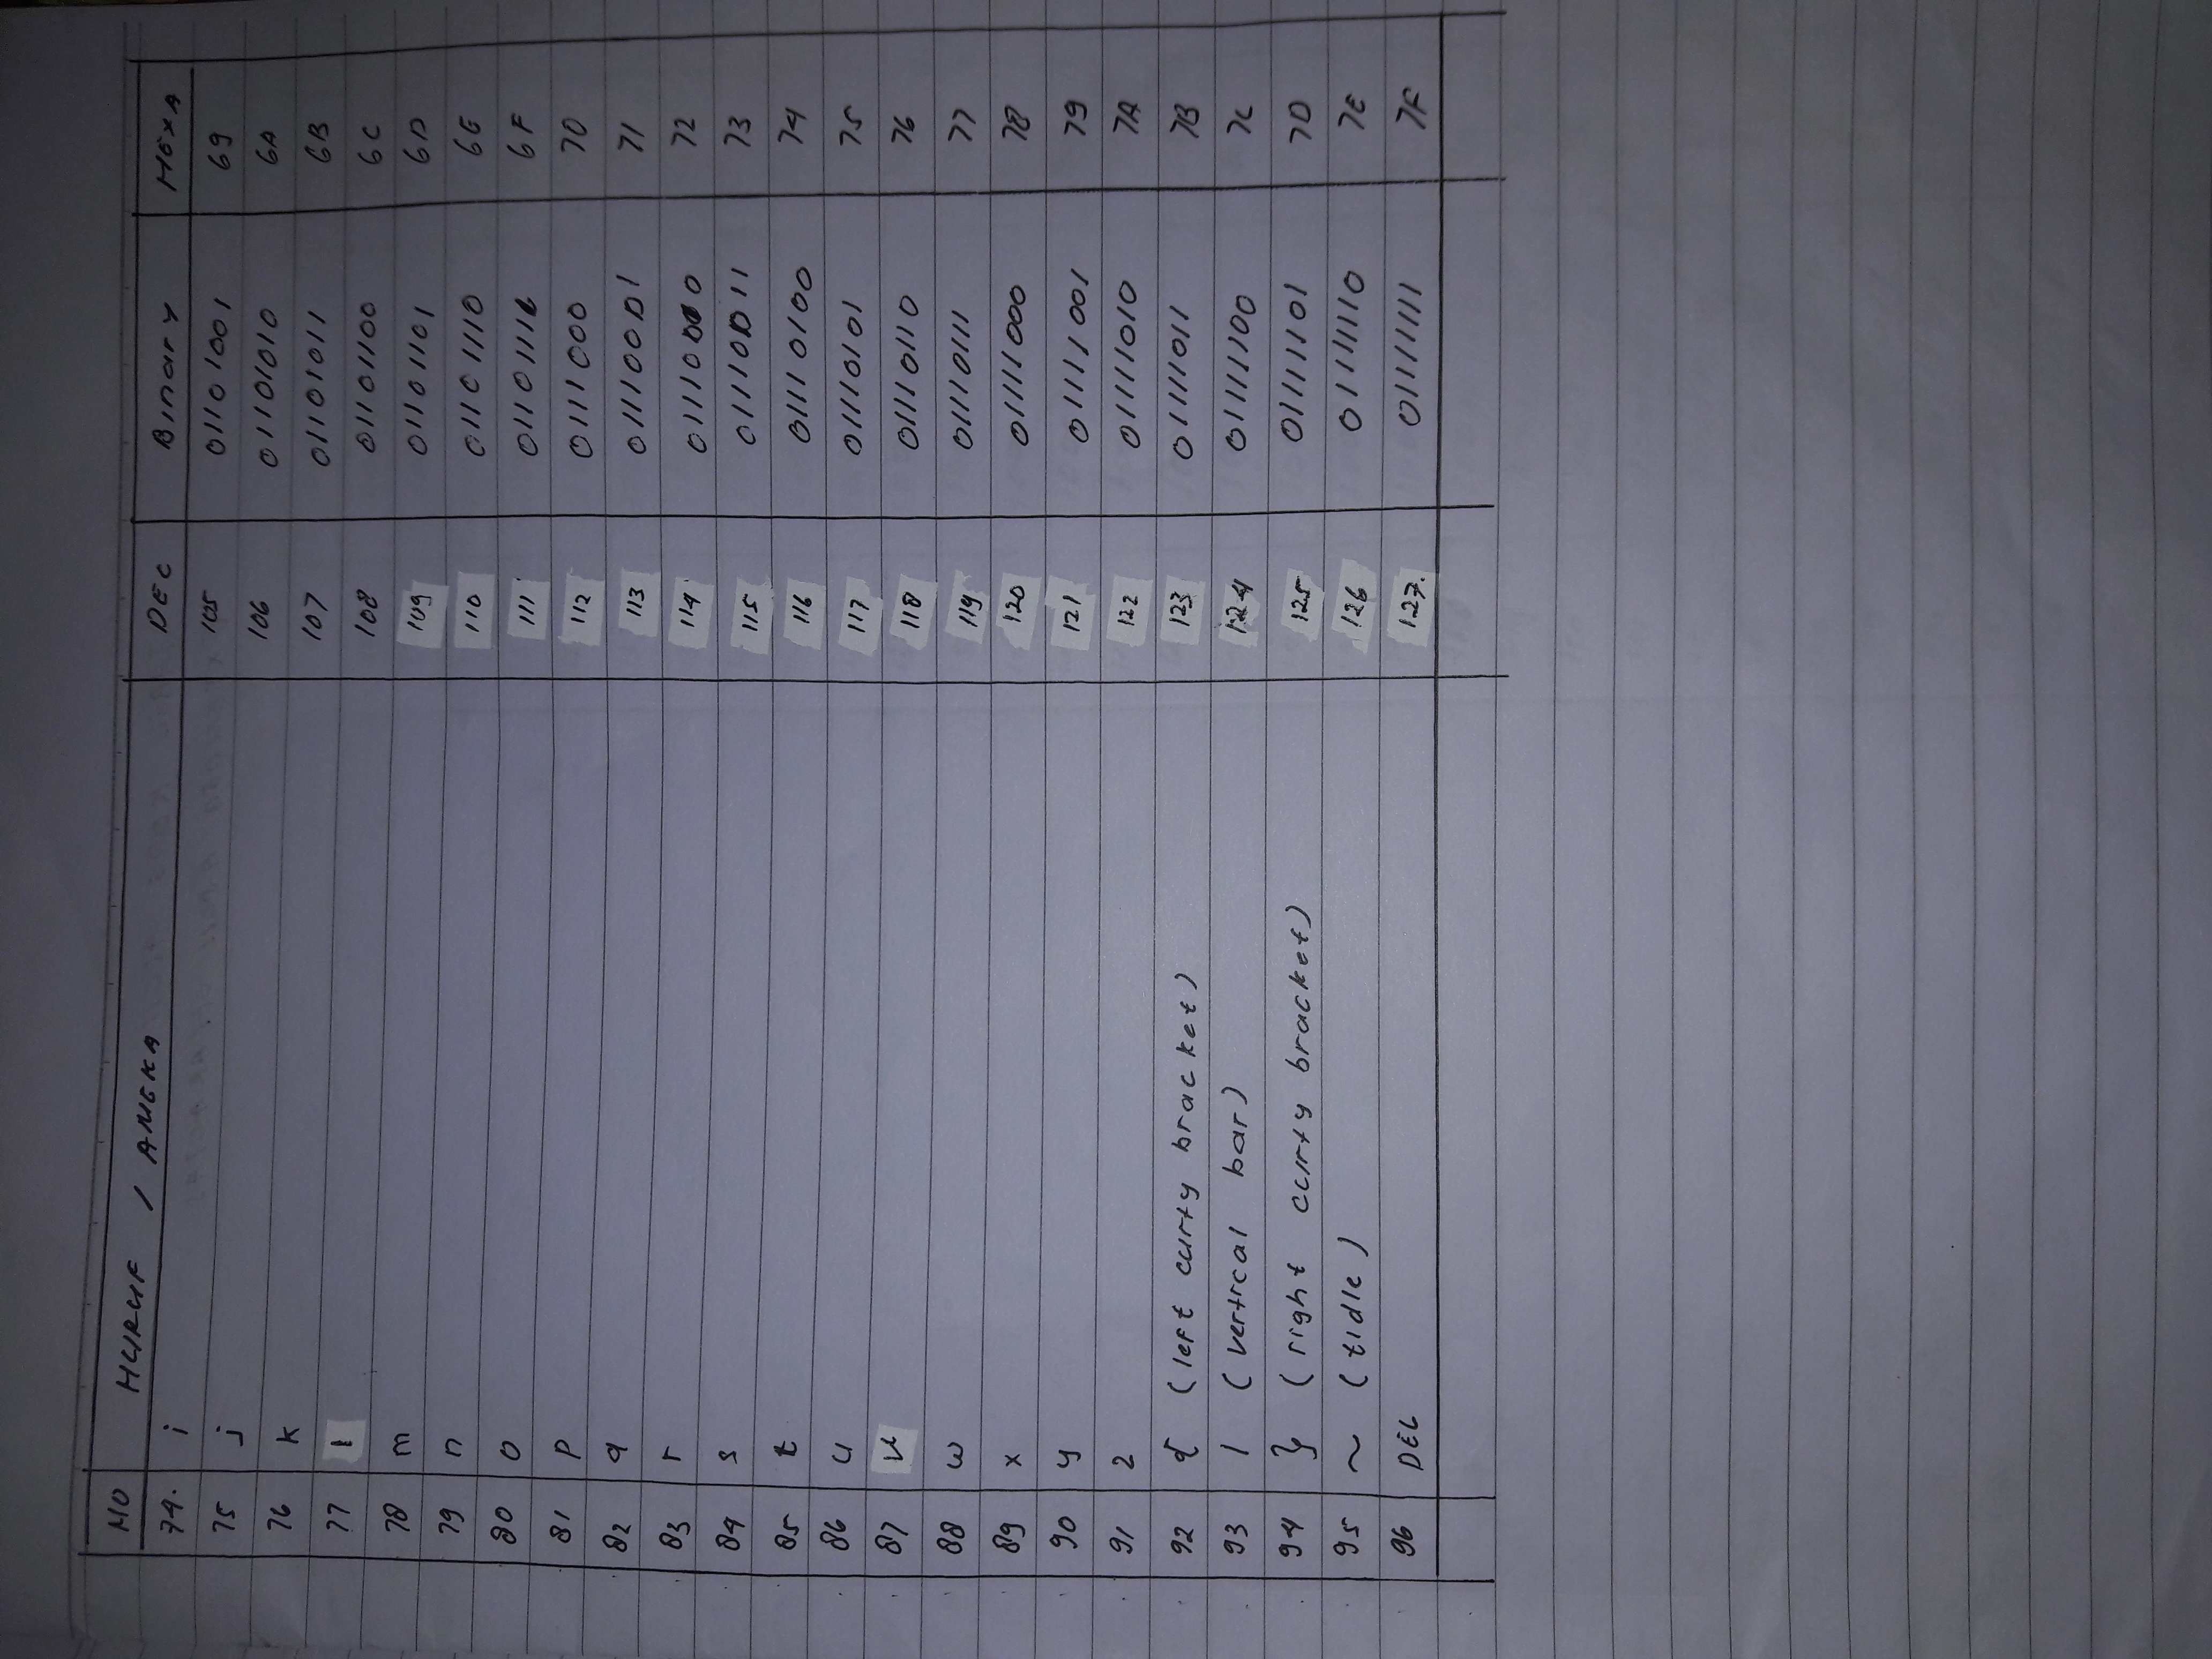 NO HURUF / ANGKA DEC Binary HEXA
74. i 105 01101001 69
75 j 106 01101010 6A
76 k 107 01101011 6B
77 l 108 01101100 6C
78 m 109 01101101 6D
79 n 110 01101110 6E
80 o 111 01101111 6F
81 p 112 0111000 70
82 q 113 01110001 71
83 r 114 01110 0 72
84 s 115 01110011 73
85 t 116 01110100 74
86 u 117 01110101 75
87 v 118 01110110 76
88 w 119 01110111 77
89 x 120 01111000 78
90 y 121 01111001 79
91 z 122 01111010 7A
92 { (left curty bracket) 123 01111011 7B
93 | (vertical bar) 124 01111100 7C
94 } (right curty bracket) 125 01111101 7D
95 ~ (tidle) 126 01111110 7E
96 DEL 127. 01111111 7F